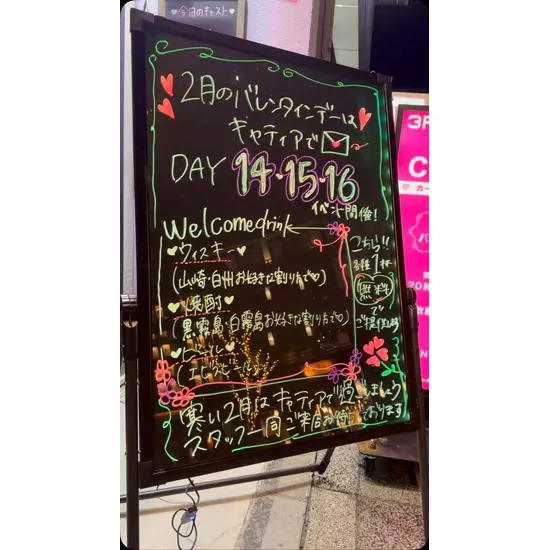 今日のキャスト
2月のバレンタインデーは
キャティアで
DAY 14・15・16
イベント開催!
Welcomedrink
♥ウィスキー♥
(山崎・白州お好きな割り方で♡)
♥焼酎♥
(黒霧島・白霧島お好きな割り方で♡)
♥ビール♥
(エビスビール)
こちら!!
各種1杯
無料
で
ご提供
寒い2月はキャティアで過ごしましょう
スタッフ一同ご来店お待ちしております
3F
C
カー
20時